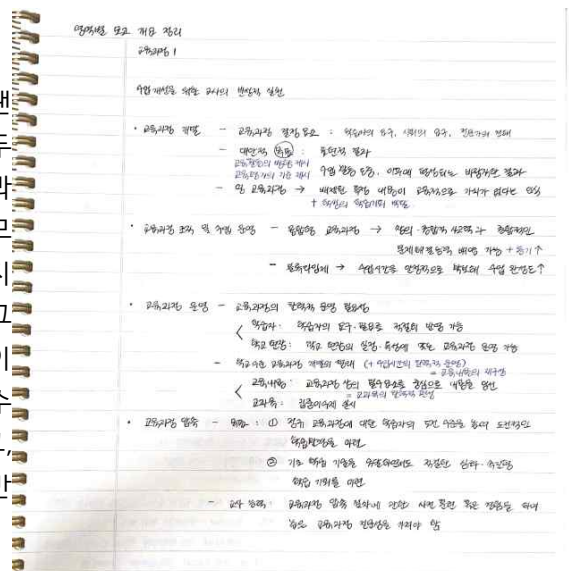 영역별 모고 개요 정리
교육과정 1
수업 개선을 위한 교사의 반성적 실천
• 교육과정 개발 - 교육과정 결정 요소 : 학습자의 요구, 사회의 요구, 전문가의 견해
- 대안적 목표 : 표현적 결과
교육활동의 방향 제시
교육평가의 기준 제시
수업 활동 도중, 이후에 형성되는 바람직한 결과
- 영 교육과정 → 배제된 특정 내용이 교육적으로 가치가 없다는 인식
+ 학생의 학습기회 박탈
• 교육과정 조직 및 수업 운영 - 융합형 교육과정 → 창의·융합적 사고력과 종합적인
문제해결능력 배양 가능 + 동기↑
- 블록타임제 → 수업시간을 안정적으로 확보해 수업 완성도↑
• 교육과정 운영 - 교육과정의 탄력적 운영 필요성
학습자 : 학습자의 요구·필요를 적절히 반영 가능
학교 현장 : 학교 현장의 실정·특성에 맞는 교육과정 운영 가능
- 학교수준 교육과정 개발의 원리 (+ 수업시간의 탄력적 운영)
= 교육내용의 재구성
교육내용 : 교육과정 상의 필수요소를 중심으로 내용을 엄선
= 교과목의 탄력적 편성
교과목 : 집중이수제 실시
• 교육과정 압축 - 목적 : ① 정규 교육과정에 대한 학습자의 도전 수준을 높여 도전적인
학습환경을 마련
② 기초 학습 기술을 유지하면서도 적절한 심화·속도형
학습 기회를 마련
- 교사 능력 : 교육과정 압축 절차에 관한 사전 훈련 혹은 경험을 하여
높은 교육과정 전문성을 가져야 함